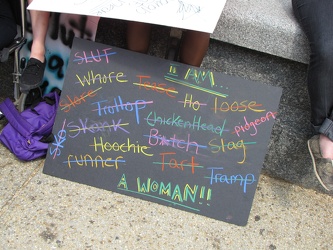 I AM...
SLUT
Whore Tease Ho loose
Store Trollop Chickenhead pidgeon
$ Skank Bitch Slag
Hoochie
runner Tart Tramp
A WOMAN!!